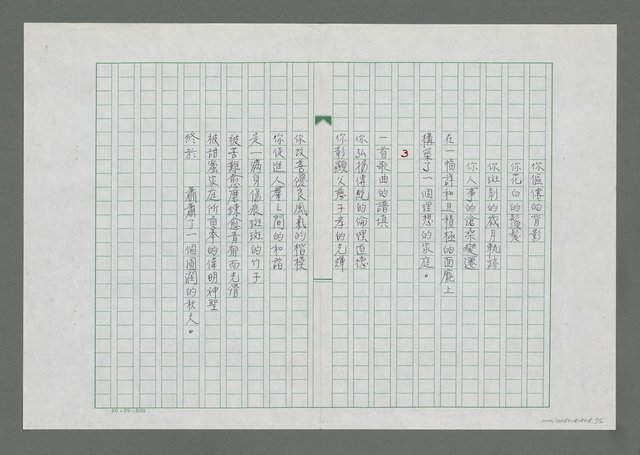 你傴僂的背影
你花白的鬚髮
你斑剝的歲月軌跡
你人事的滄桑變遷
在一幅詳和且積極的面龐上
構築了一個理想的家庭。
3
一首歌曲的譜填
你弘揚傳統的倫理道德
你彰顯父慈子孝的光輝
你改善優良風氣的楷模
你促進人羣之間的和諧
是一滿身傷痕斑斑的竹子
被苦難愈磨鍊愈青郁而光滑
被甜蜜家庭所首奉的偉明神聖
終於 肅肅了一個圓潤的秋天。
20×25=500